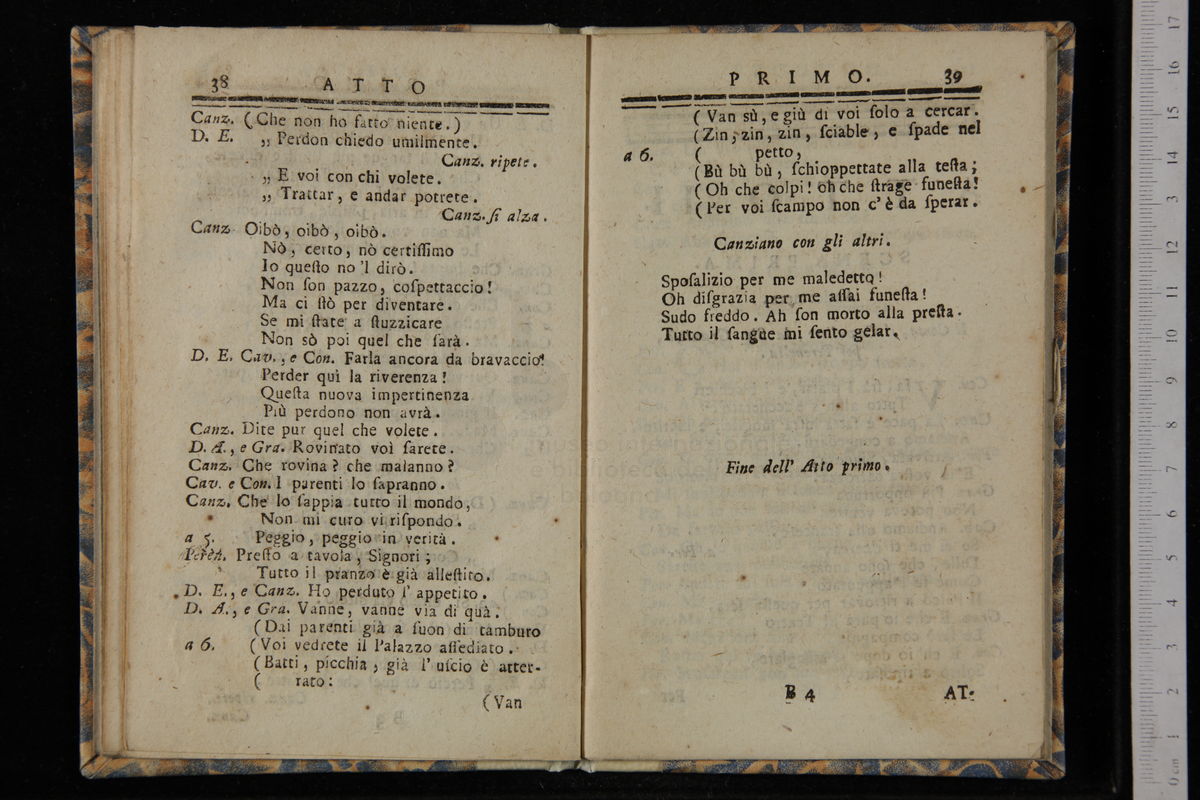 38 ATTO
Canz. (Che non ho fatto niente.)
D. E. „ Perdon chiedo umilmente.
Canz. ripete.
„ E voi con chi volete.
„ Trattar, e andar potrete.
Canz. ſi alza.
Canz. Oibò, oibò, oibò.
Nò, certo, nò certiſſimo
Io queſto no 'l dirò.
Non ſon pazzo, coſpettaccio!
Ma ci ſtò per diventare.
Se mi ſtate a ſtuzzicare
Non sò poi quel che ſarà.
D. E. Cav., e Con. Farla ancora da bravaccio!
Perder quì la riverenza!
Queſta nuova impertinenza
Più perdono non avrà.
Canz. Dite pur quel che volete.
D. A., e Gra. Rovinato voi ſarete.
Canz. Che rovina? che malanno?
Cav. e Con. I parenti lo ſapranno.
Canz. Che lo ſappia tutto il mondo,
Non mi curo vi riſpondo.
a 5. Peggio, peggio in verità.
Preſto a tavola, Signori;
Tutto il pranzo è già alleſtito.
D. E., e Canz. Ho perduto l' appetito.
D. A., e Gra. Vanne, vanne via di quà.
(Dai parenti già a ſuon di tamburo
a 6. (Voi vedrete il Palazzo aſſediato.
(Batti, picchia, già l' uſcio è atter-
( rato:
(Van
PRIMO. 39
(Van sù, e giù di voi ſolo a cercar.
(Zin, zin, zin, ſciable, e ſpade nel
a 6. ( petto,
(Bù bù bù, ſchioppettate alla teſta;
(Oh che colpi! oh che ſtrage funeſta!
(Per voi ſcampo non c' è da ſperar.
Canziano con gli altri.
Spoſalizio per me maledetto!
Oh diſgrazia per me aſſai funeſta!
Sudo freddo. Ah ſon morto alla preſta.
Tutto il ſangue mi ſento gelar.
Fine dell' Atto primo.
B 4 AT-